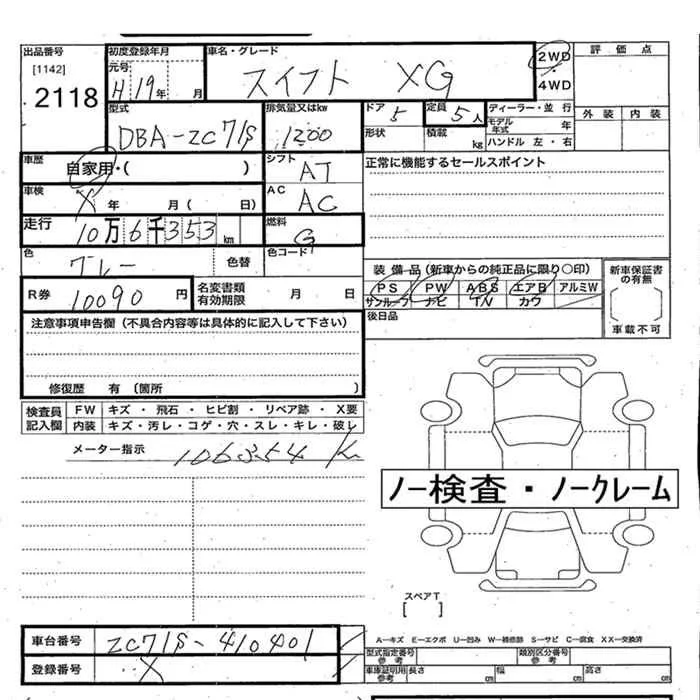 出品番号
[1142]
2118
初度登録年月
元号
H 19年 月
車名・グレード
スイフト XG
2WD
・
4WD
評価点
外装 内装
型式
DBA-ZC71S
排気量又はkw
1200
ドア 5
形状
定員 5人
積載 kg
ディーラー・並行
モデル年式 年
ハンドル 左・右
車歴
自家用・( )
シフト
AT
正常に機能するセールスポイント
車検
X 年 月( 日)
AC
AC
走行
10万6千353km
燃料
G
色
グレー
色替
色コード
装備品(新車からの純正品に限り○印)
PS PW ABS エアB アルミW
サンルーフ ナビ TV カワ
新車保証書の有無
車載不可
R券
10090円
名変書類有効期限 月 日
後日品
注意事項申告欄(不具合内容等は具体的に記入して下さい)
修復歴 有 〔箇所 〕
検査員記入欄
FW キズ・飛石・ヒビ割・リペア跡・X要
内装 キズ・汚レ・コゲ・穴・スレ・キレ・破レ
メーター指示
106354 K
ノー検査・ノークレーム
スペアT
[ ]
車台番号
ZC71S-410401
登録番号
X
A-キズ E-エクボ U-凹み W-補修跡 S-サビ C-腐食 XX-交換済
型式指定番号参考
類別区分番号参考
車庫証明用参考 長さ 幅 高さ